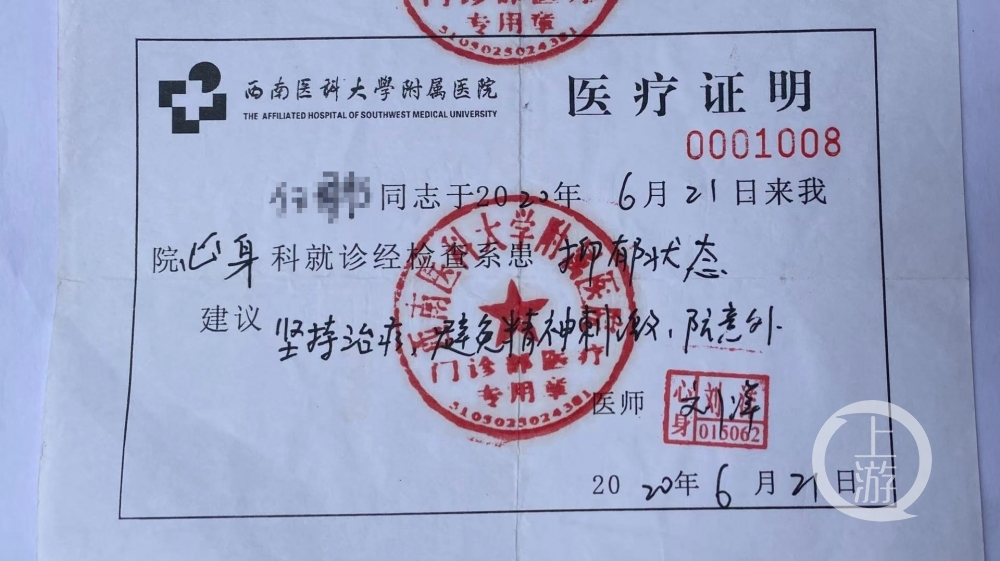 专用章
5105025024381
西南医科大学附属医院
THE AFFILIATED HOSPITAL OF SOUTHWEST MEDICAL UNIVERSITY
医疗证明
0001008
同志于2020年6月21日来我
院心身科就诊经检查系患抑郁状态
建议坚持治疗、避免精神刺激、防意外.
西南医科大学附属医院
门诊部医疗
专用章
5105025024381
医师
心身
刘
015062
2020年6月21日
上游